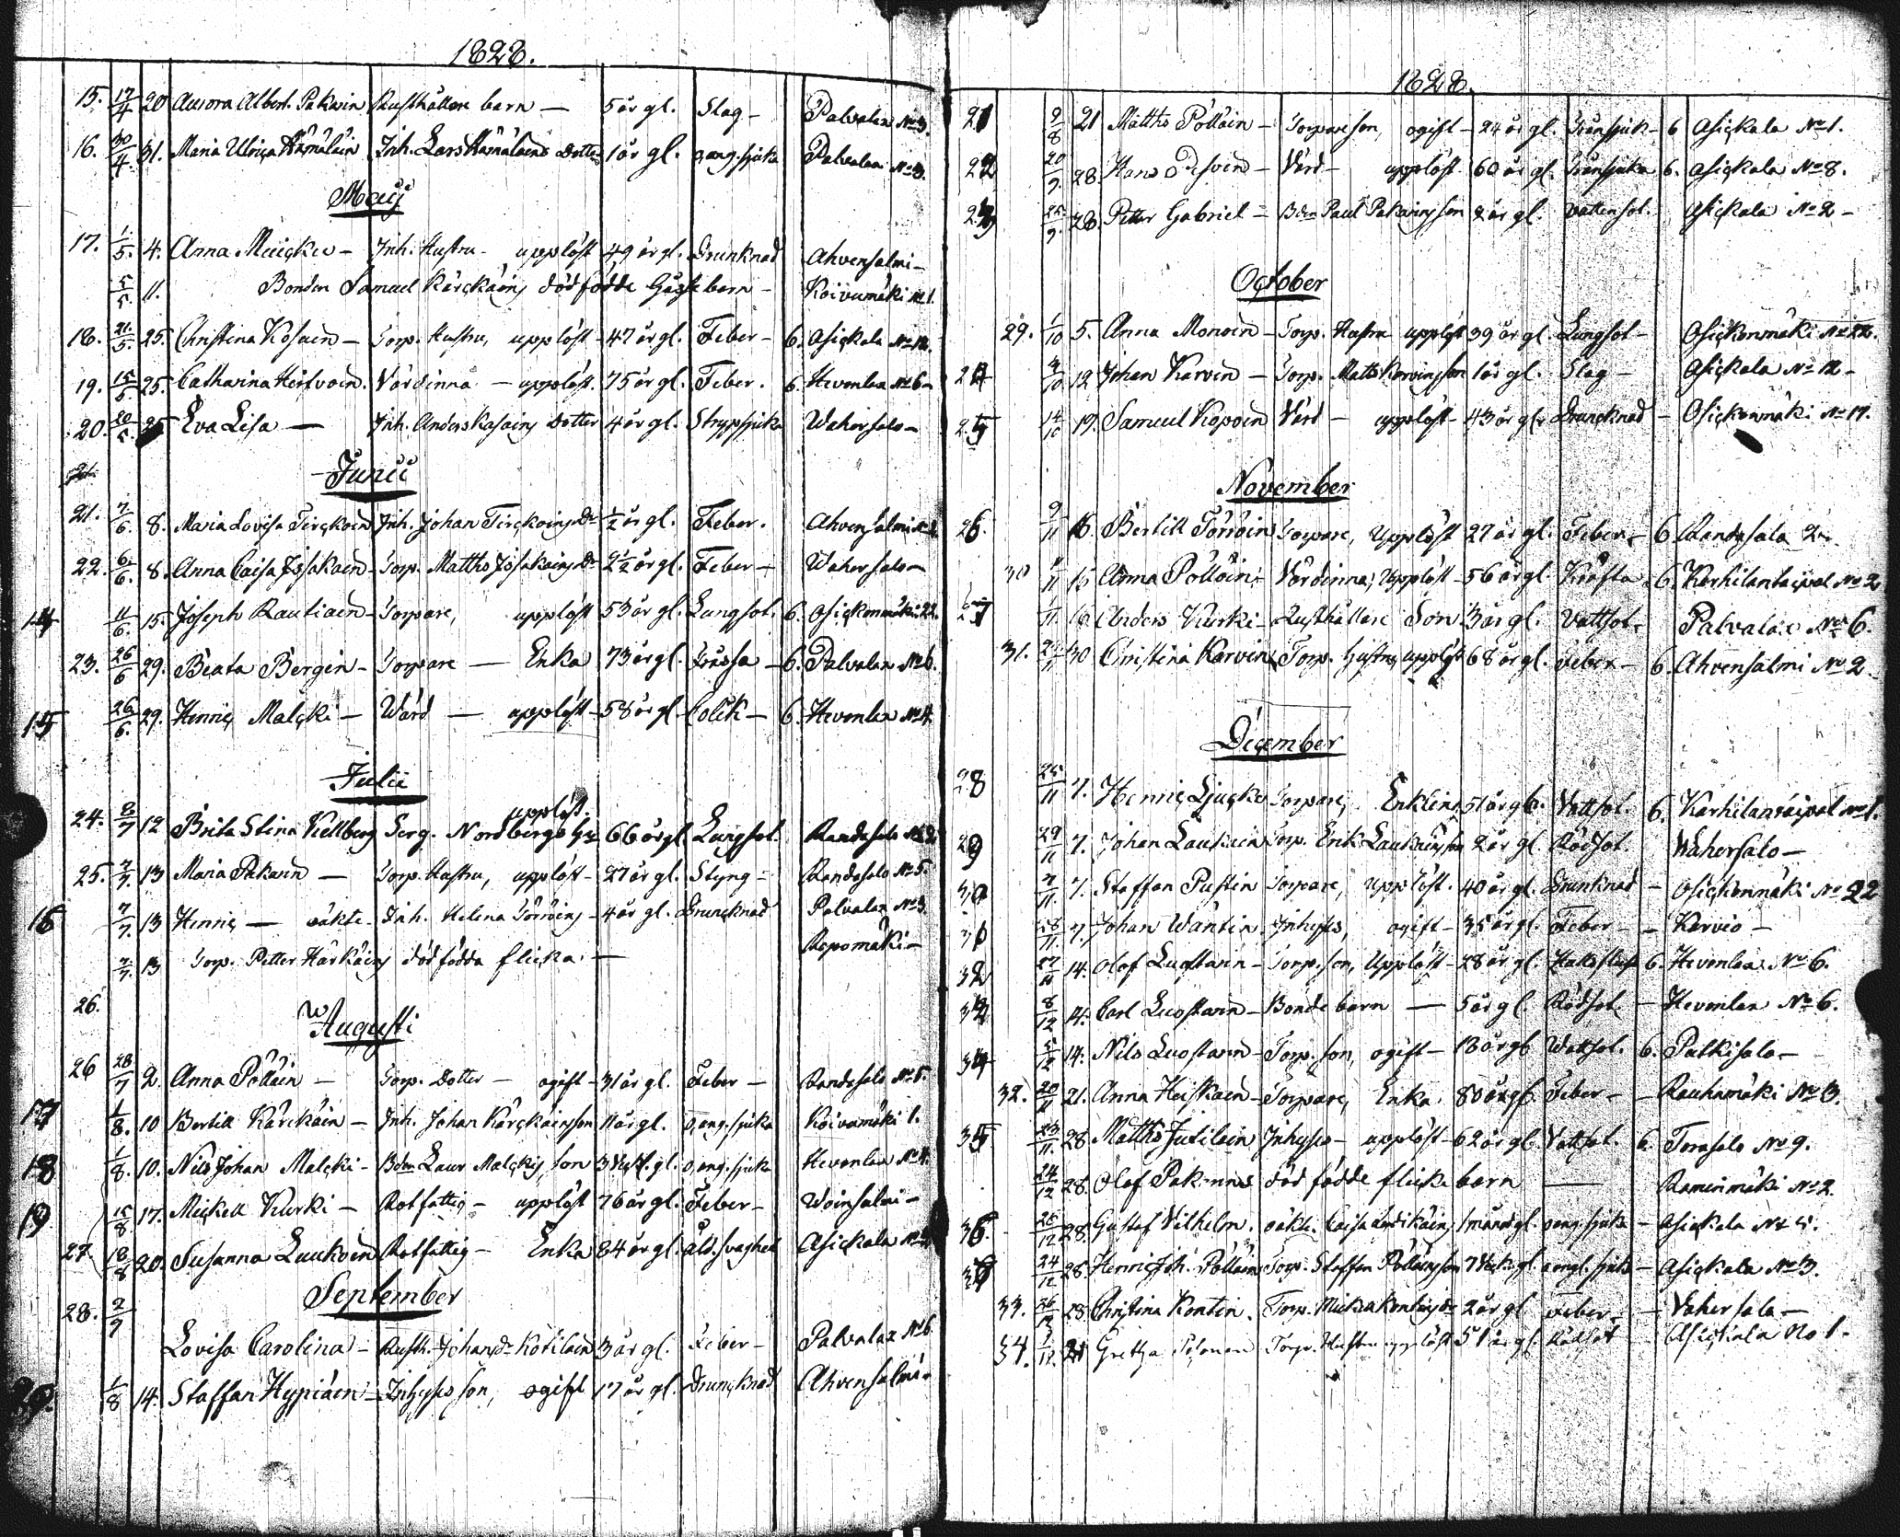 1828.
15. 17/4 20 Aurora Albert. Pakarin Rusthållare barn — 5 år gl. Slag — Palvalax No 3.
16. 30/4 31. Maria Ulrica Hämäläin Inh. Lars Hämäläins Dotter 1 år gl. Palvalax No 3.
Maij
17. 1/5. 4. Anna Muicku — Inh. Hustru — upplöst 49 år gl. Drunknad Ahvensalmi —
5/5 11. Bonden Samuel Kärckäins död födde Gåsse barn — Koivumäki No 1.
18. 21/5. 25. Christina Kosain — Torp. Hustru, upplöst — 47 år gl. Feber — 6. Asickala No 12.
19. 25. Catharina Hirfvoin. Värdinna — upplöst. 75 år gl. Feber. 6 Hevonlax No 6 —
20. 20/5. 25 Eva Lisa — Inh. Anders Kasains Dotter 4 år gl. Strypsjuka Wahersalo —
Junii
21. 7/6. 8. Maria Lovisa Tirckoin Inh. Johan Tirckoins Dr 1/2 år gl. Feber. Ahvensalmi
22. 6/6. 8. Anna Caisa Issakain — Torp. Matths Issakains Dr 2 1/2 år gl. Feber — Wahersalo —
14 11/6. 15. Joseph Rautiain — Torpare, upplöst 53 år gl. Lungsot. 6. Asickonmäki 22.
23. 26/6 29. Beata Bergin — Torpare — Enka 73 år gl. Frossa — 6. Palvalax No 6.
15 26/6. 29. Henric Malcki — Wärd — upplöst — 58 år gl Colik — 6. Hevonlax No 4.
Julii
24. 8/7 12 Brita Stina Kellberg Serg. Nordbergs Hu upplöst. 66 år gl. Lungsot. Randasalo No 2
25. 7/7. 13 Maria Pakarin — Torp. Hustru, upplöst — 27 år gl. Styng — Randasalo No 5.
16 7/7. 13 Henric — oäkta. Inh. Helena Törröins — 4 år gl. Druncknad Palvalax No 3.
7/7. 13 Torp. Petter Härkäins död födda flicka — Repomäki —
26.
Augusti
26 28/7 2. Anna Pölläin — Torp. Dotter — ogift — 31 år gl. Feber — Randasalo No 5.
17 1/8. 10 Bertill Kärckäin — Inh. Johan Kärckäins son 11 år gl. Koivumäki 1.
18 1/8. 10. Nils Johan Malcki — Bdn Laur Malckis son 3 Veck. gl. Hevonlax No 4.
19 15/8 17. Mickell Kurki — Rotfattig — upplöst 76 år gl. Feber — Woinsalmi —
27 18/8 20. Susanna Laukoin Rotfattig — Enka 84 år gl. Åld. svaghet Asickala
September
28. 2/9 Lovisa Carolina — Rusth. Johans Dr Kotilain 3 år gl. Feber — Palvalax No 6
1/8 14. Staffan Hypiäin — Inhyses son, ogift 17 år gl. Druncknad Ahvensalmi
1828.
21 9/8 21 Matths Pöllöin — Torpare son, ogift — 24 år gl. 6 Asickala No 1.
22 20/9. 28. Hans — Värd — upplöst — 60 år gl. 6. Asickala No 8.
23 25/9. 28. Petter Gabriel — Bdn Paul Pakarins son 2 år gl. Vattensot. Asickala No 2 —
October
29. 1/10 5. Anna Monoin — Torp. Hustru upplöst 39 år gl. Lungsot — Asickonmäki No 22.
24 4/10 12. Johan Karvin — Torp. Matts Karvins son 1 år gl. Slag — Asickala No 12 —
25 14/10 19. Samuel Kopoin Värd — upplöst — 43 år gl. Druncknad — Asickonmäki No 17.
November
26. 9/11 16. Bertill Törröin Torpare, Upplöst 27 år gl. Feber — 6 Randasalo 2
30 11 15 Anna Pöllöin — Värdinna, Upplöst — 56 år gl. Kräfta — 6. Karhilantaipal No 2
27 Anders Kurki — Rusthållare Son 3 år gl. Vattsot — Palvalax No 6.
31. 30 Christina Karvin Torp. Hustru upplöst 68 år gl. Feber — 6. Ahvensalmi No 2.
December
28 25/11 7. Henric Ljucku Torpare, Enkling 51 år gl. Vattsot. 6. Karhilantaipal No 1.
29 29/11 7. Johan Laukain Torp. Erik Laukains son 2 år gl. Rödsot. Wahersalo —
30 7. Staffan Pustin Torpare, upplöst. 40 år gl. Drunknad — Asickonmäki No 22
31 7. Johan Wäntin. Inhyses, ogift — 35 år gl. Feber — — Kervio —
32 14. Olof Luostarin — Torp. son, Upplöst — 28 år gl. 6. Hevonlax No 6.
8/12 14. Carl Luostarin — Bonde barn — 5 år gl. Rödsot. — Hevonlax No 6.
34 5/12 14. Nils Luostarin — Torp. son, ogift — 18 år gl. Wattsot. 6. Putkisalo —
32. 20/11 21. Anna Heiskain — Torpare, Enka. 80 år gl. Feber — — Rauhamäki No 3.
35 23/11. 28. Matths Jutilain Inhyses — upplöst — 62 år gl. Vattsot. 6. Torasalo No 9.
24/12 28. Olof Pakarins död födde flicke barn — Raminmäki No 2
36. 25/12 28. Gustaf Vilhelm. oäkta. Caisa 1 månad gl. — Asickala
24/12 28. Henric Joh. Pöllöin Torp. Staffan Pöllöins son 7 Veck. gl. — Asickala No 3.
33. 28. Christina Kontin. Torp. Mickel Kontins Dr 2 år gl Feber — — Vahersalo —
34. Gretha Torp. Hustru upplöst 51 år gl. Rödsot — Asickala No 1 —